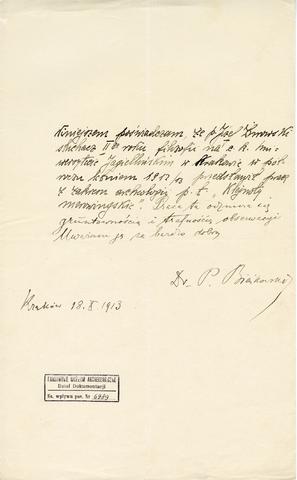 Niniejszem poświadczam, że p. Józef Żurowski
słuchacz II go roku filozofii na c. k. Uni-
wersytecie Jagiellońskim w Krakowie w pół-
roczu 191 przedstawił pracę
z zakresu archeologii p. t. „Kłynoty
". Praca ta odznacza się
gruntownością i trafnością obserwacji
Uważam ją za bardzo dobrą
Dr. P. Bieńkowski
Kraków 18. X 1913
PAŃSTWOWE MUZEUM ARCHEOLOGICZNE
Dział Dokumentacji
Ks. wpływu poz. Nr 6989